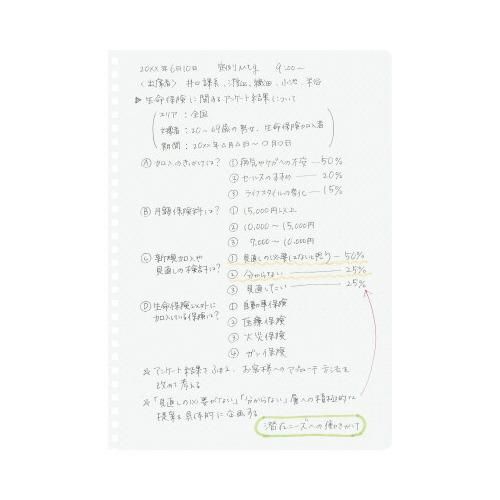 20XX年6月10日 定例Mtg 9:00~
〈出席者〉 井口課長、
▶ 生命保険に関するアンケート結果について
エリア：全国
対象者：20~69歳の男女、生命保険加入者
期間：20XX年△月△日~○月○日
Ⓐ 加入のきっかけは？ ① 病気やケガへの不安 50%
② セールスのすすめ 20%
③ ライフスタイルの変化 15%
Ⓑ 月額保険料は？ ① 15,000円以上
② 10,000~15,000円
③ 7,000~10,000円
Ⓒ 新規加入や見直しの検討は？ ① 見直しの必要はないと思う 50%
② 分からない 25%
③ 見直したい 25%
Ⓓ 生命保険以外に加入している保険は？ ① 自動車保険
② 医療保険
③ 火災保険
④ ガン保険
※ アンケート結果をふまえ、お客様へのアプローチ方法を
改めて考える
※「見直しの必要がない」「分からない」層への積極的な
提案を具体的に企画する
潜在ニーズへの働きかけ